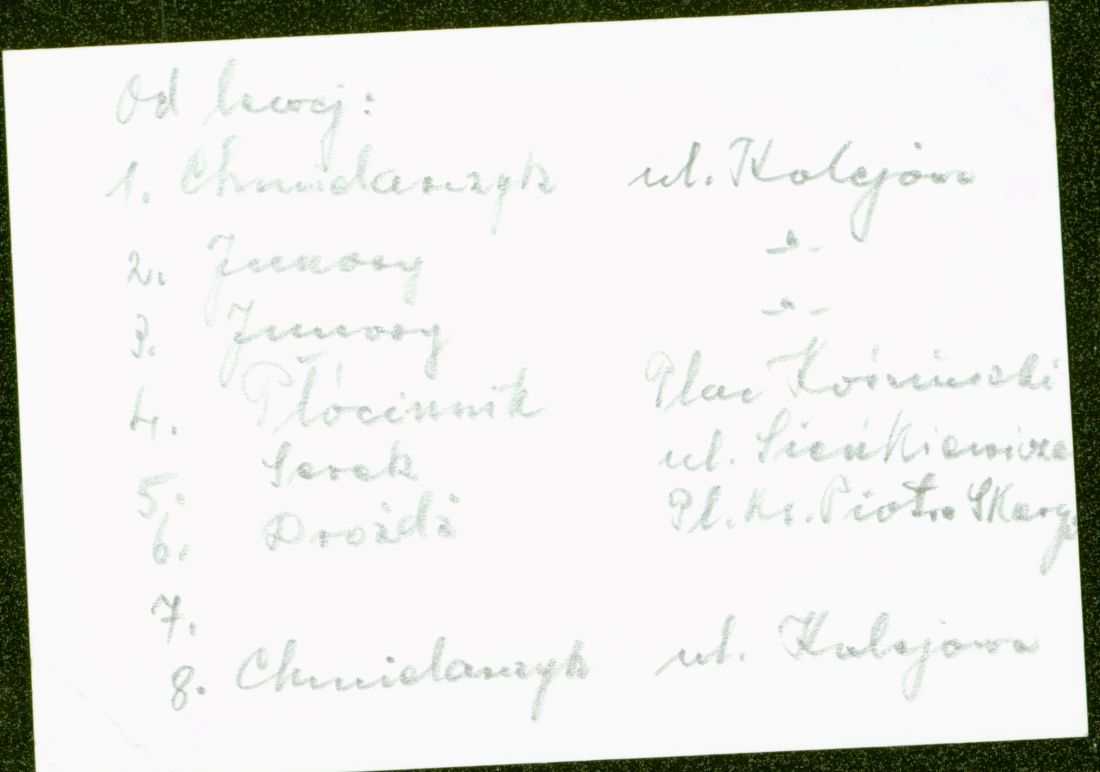 Od lewej:
1. Chmielarczyk ul. Kolejowa
2. Junoszy -"-
3. Junoszy -"-
4. Płócinnik Plac
5. Serek ul. Sienkiewicza
6. Drożdż Pl. Ks. Piotra Skargi
7.
8. Chmielarczyk ul. Kolejowa